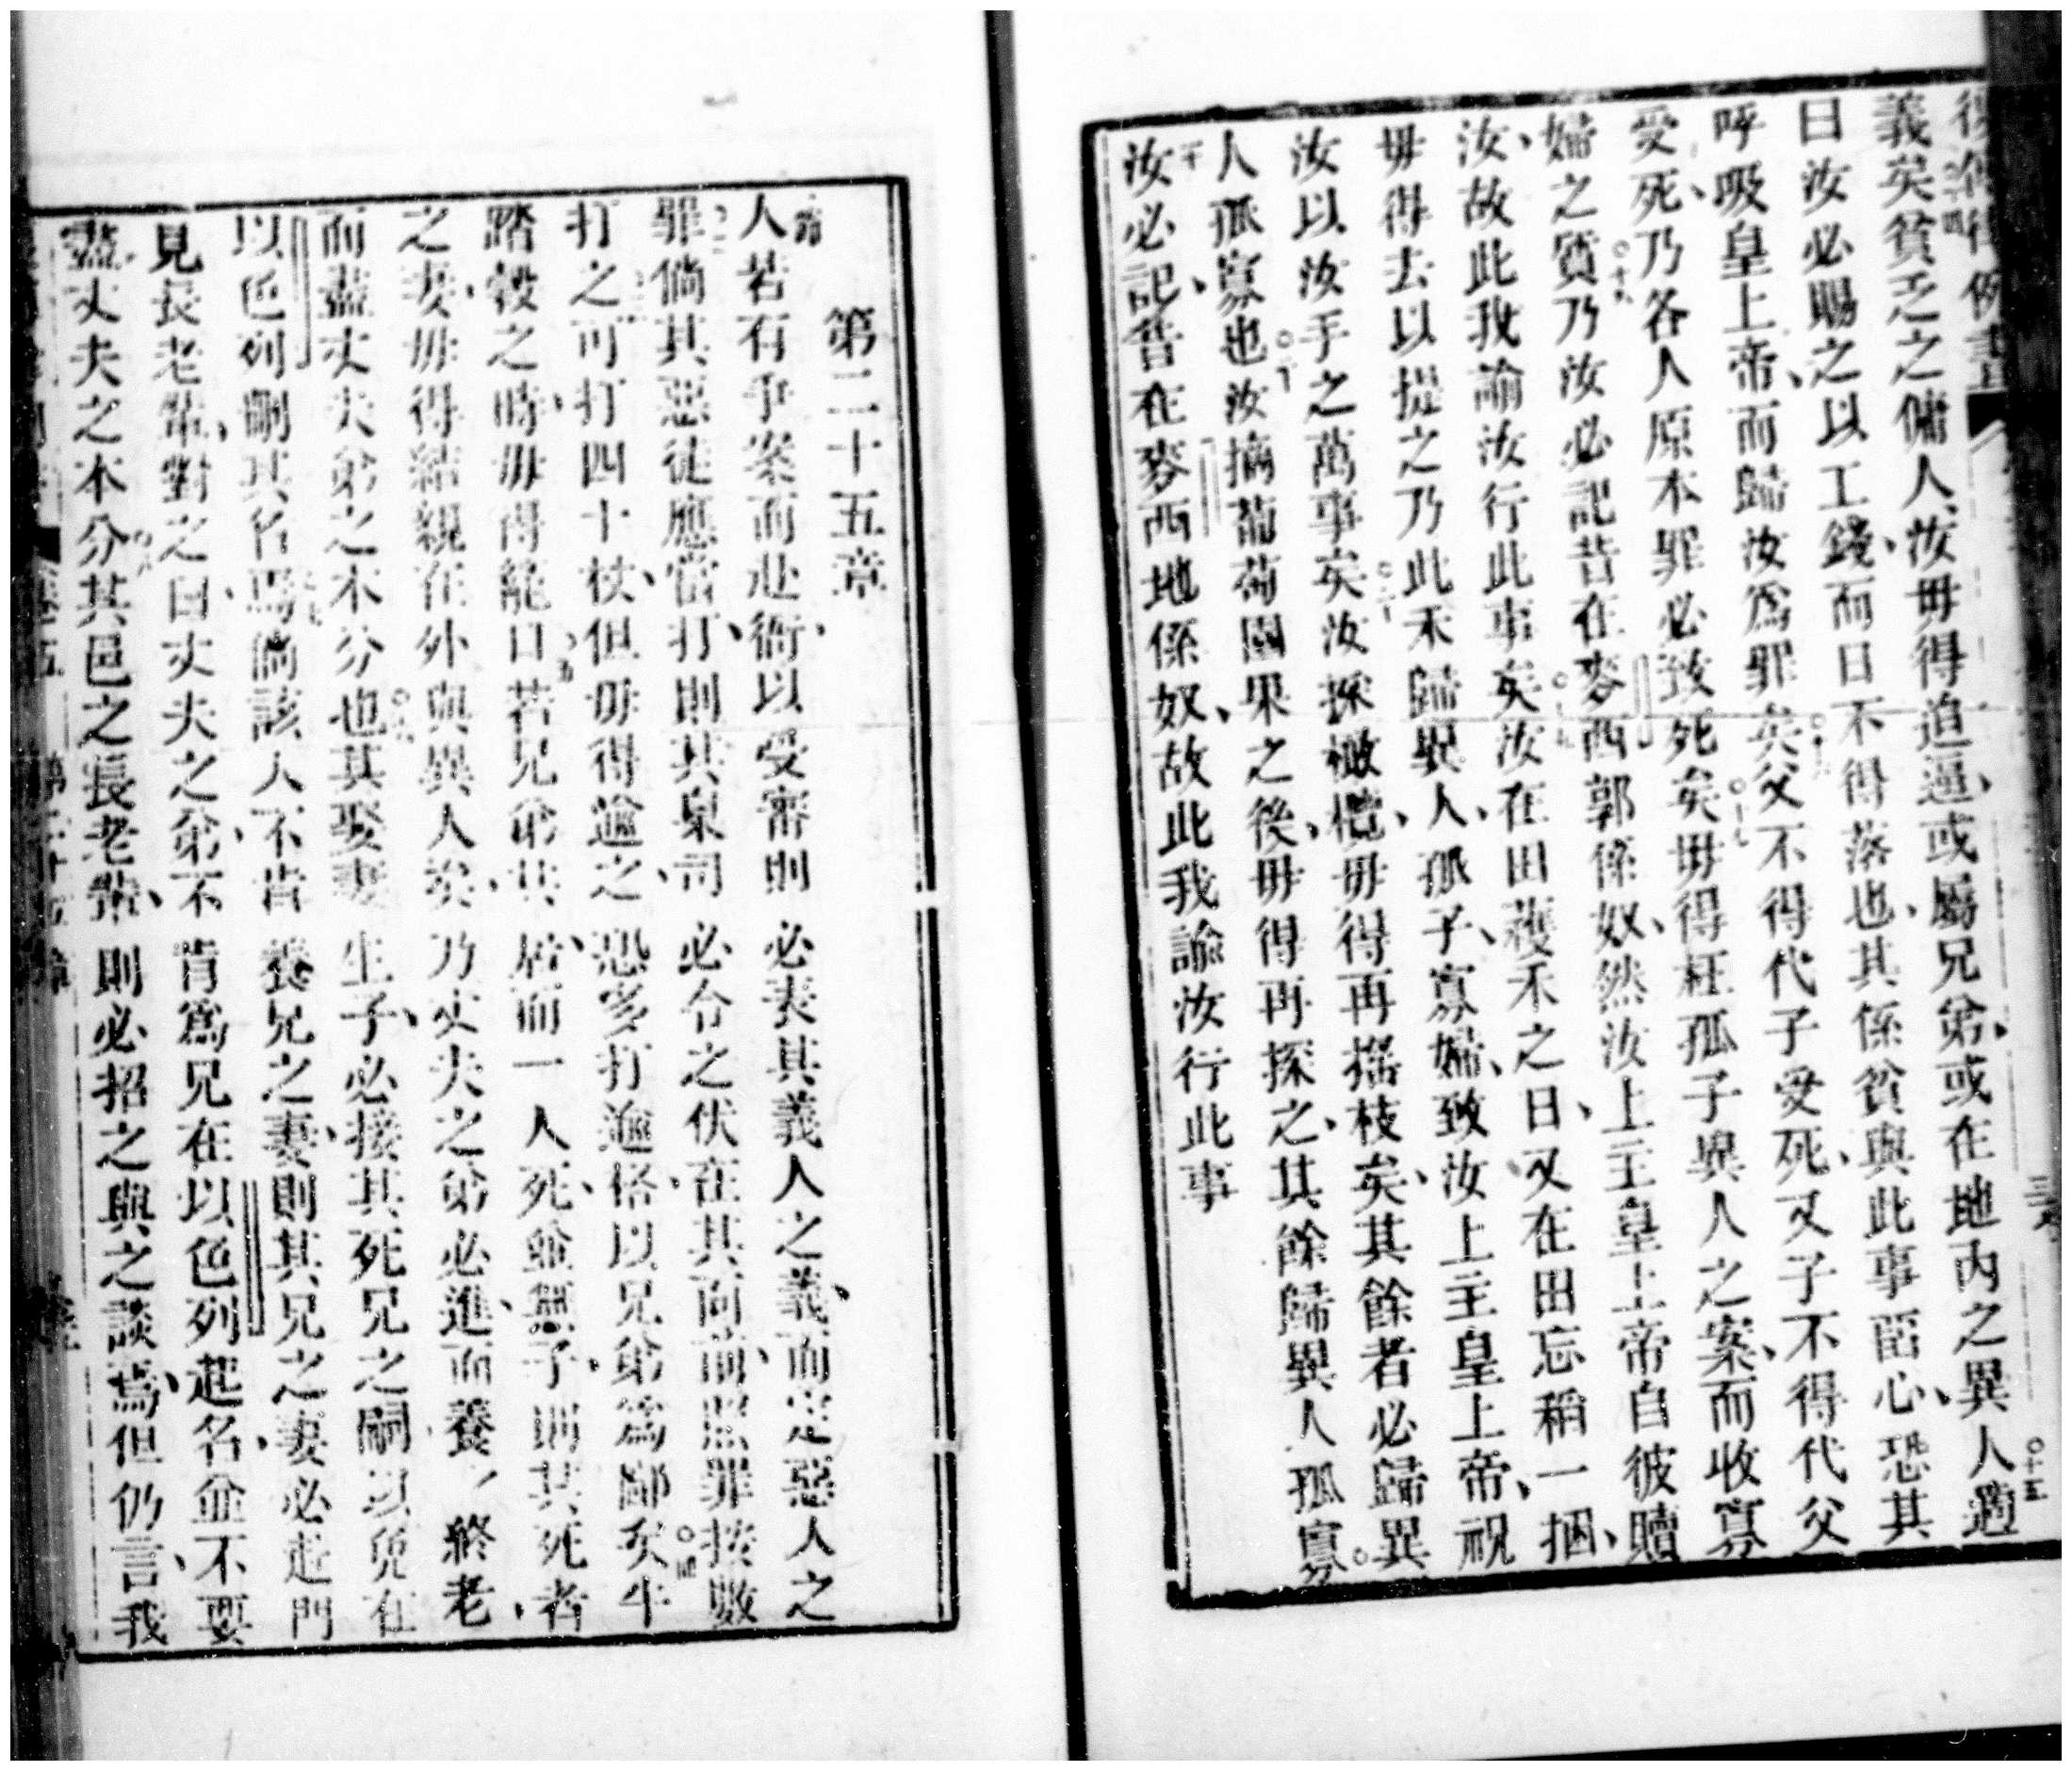 復傳律例書
義矣貧乏之傭人汝毋得迫逼或屬兄弟或在地內之異人
十四
十五
曰汝必賜之以工錢而日不得落也其係貧與此事畱心恐其
呼吸皇上帝而歸汝為罪矣父不得代子受死又子不得代父
受死乃各人原本罪必致死矣毋得枉孤子異人之案而收寡
十七
婦之質乃汝必記昔在麥西郭係奴然汝上主皇上帝自彼贖
十八
汝故此我諭汝行此事矣汝在田穫禾之日又在田忘稻一捆
毋得去以提之乃此禾歸異人孤子寡婦致汝上主皇上帝視
汝以汝手之萬事矣汝探橄欖毋得再搖枝矣其餘者必歸異
二十
人孤寡也汝摘葡萄園果之後毋得再探之其餘歸異人孤寡
汝必記昔在麥西地係奴故此我諭汝行此事
第二十五章
人若有爭案而赴衙以受審則必表其義人之義而定惡人之
罪倘其惡徒應當打則其臬司必令之伏在其面前照罪按數
打之可打四十杖但毋得逾之恐多打逾格以兄弟為鄙矣牛
四
踏穀之時毋得籠口若兄弟共居而一人死並無子則其死者
五
之妻毋得結親在外與異人矣乃丈夫之弟必進而養終老
而盡丈夫弟之本分也其娶妻生子必接其死兄之嗣以免在
以色列刪其名焉倘該人不肯養兄之妻則其兄之妻必赴門
見長老輩對之曰丈夫之弟不肯為兄在以色列起名並不要
盡丈夫之本分其邑之長老輩則必招之與之談焉但仍言我
卷五
第二十五章